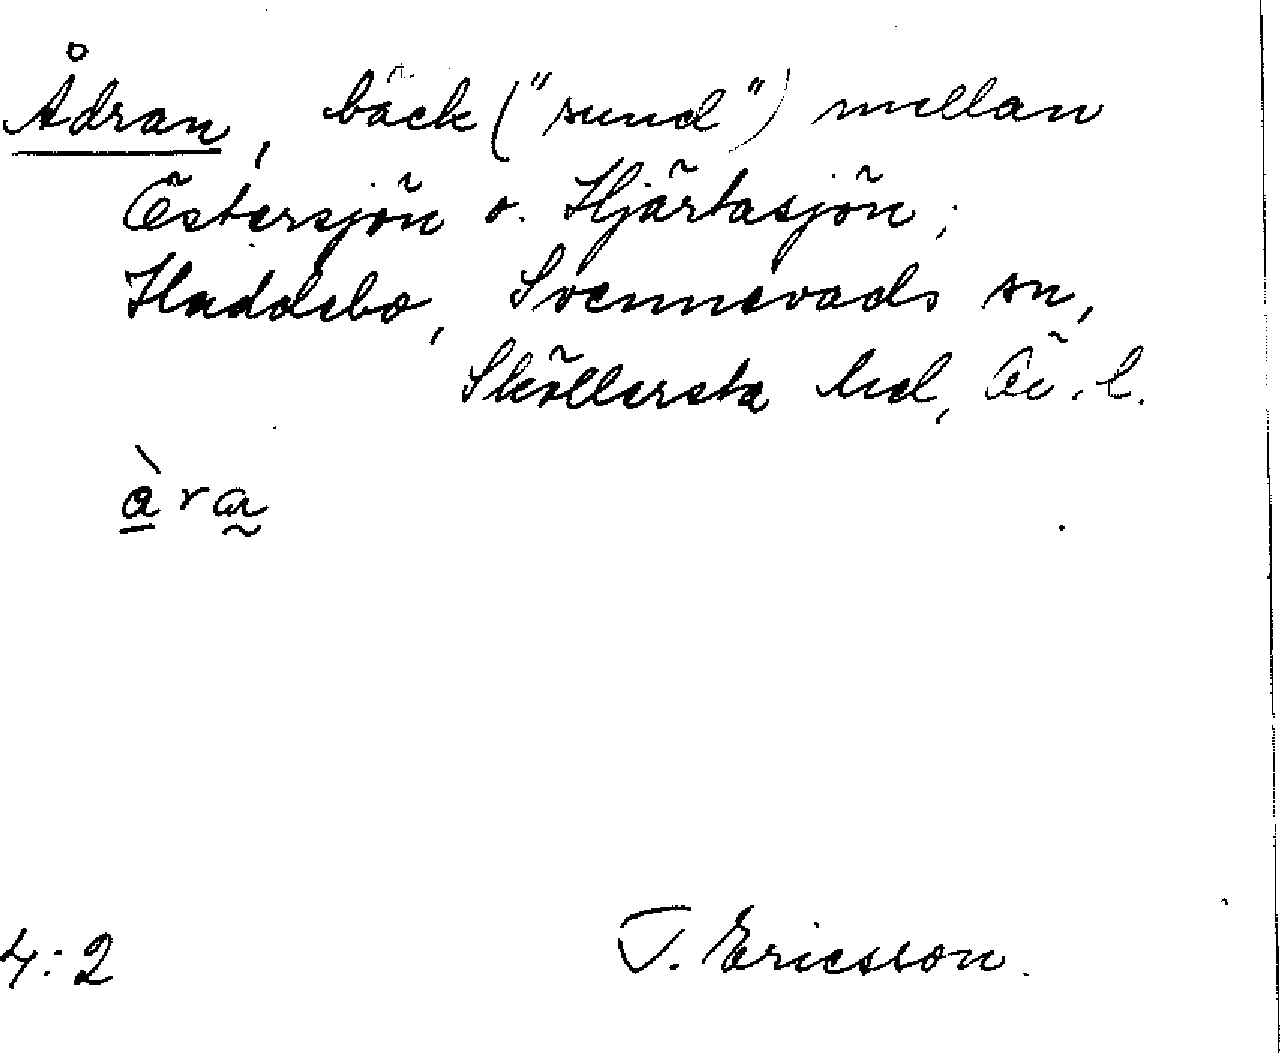 Ådran, bäck ("sund") mellan
Östersjön o. Hjärtasjön;
Haddebo, Svennevads sn,
Sköllersta hd, Ö. l.
àra
4:2 T. Ericsson.